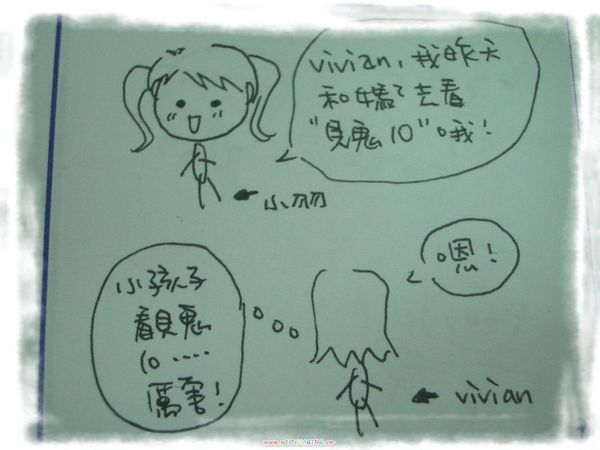 vivian，我昨天
和媽了去看
"見鬼10"哦！
小羽
嗯！
小孩子
看見鬼
10‥‥
厲害！
vivian